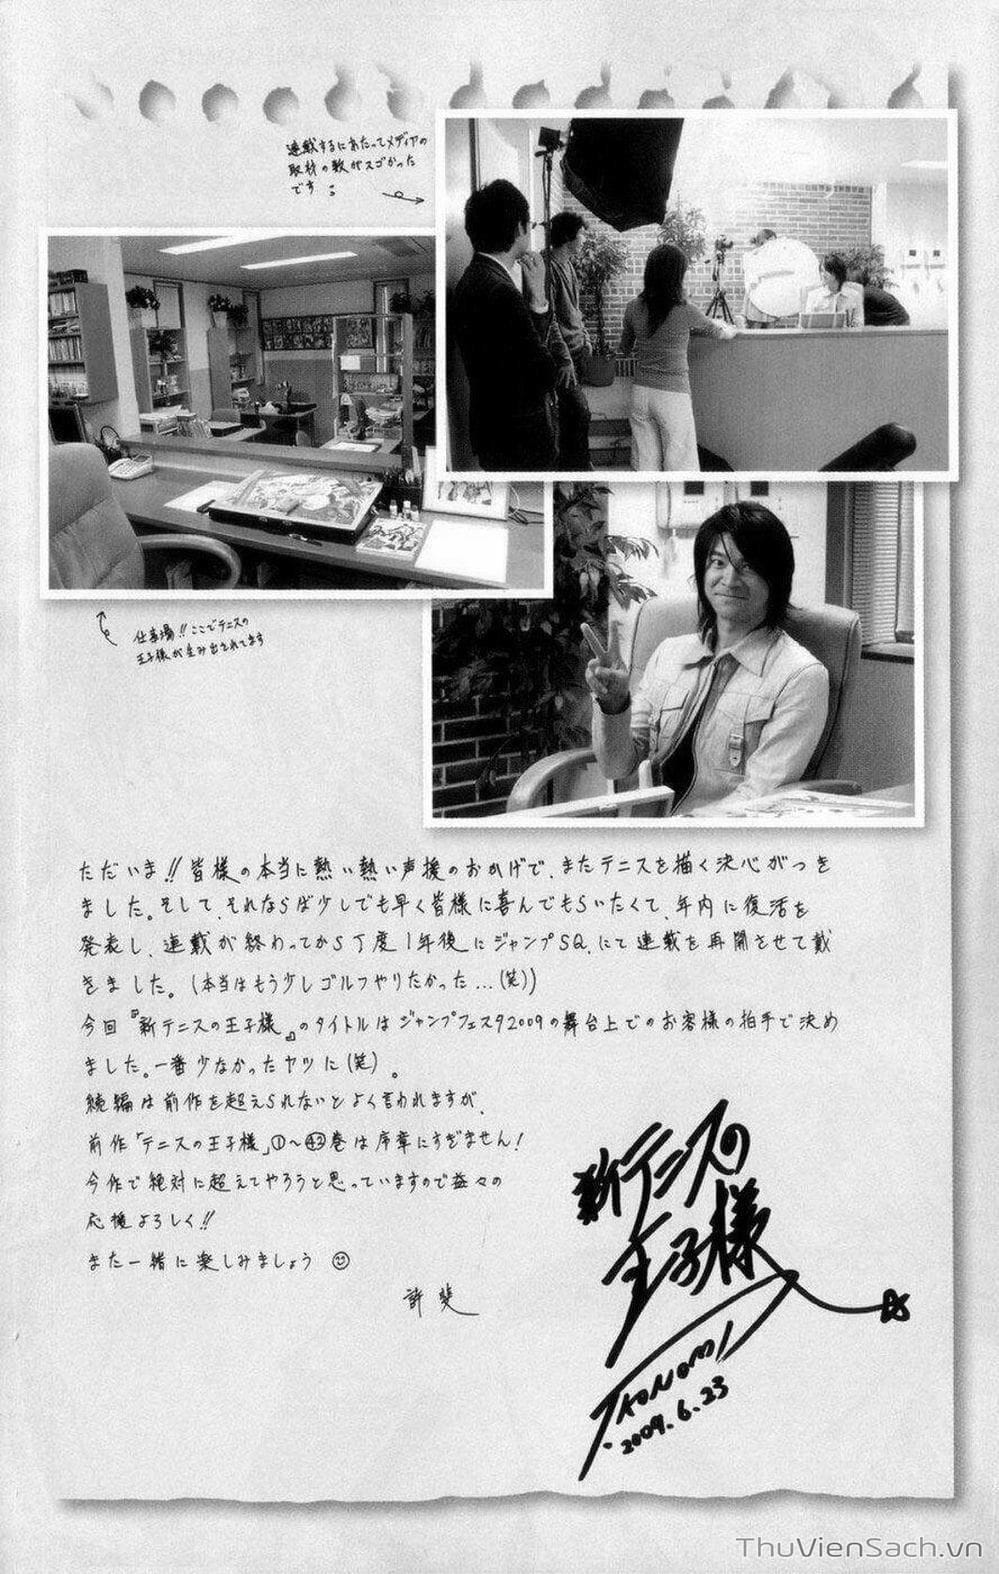 連載するにあたってメディアの
取材の数がスゴかった
です
仕事場!!ここでテニスの
王子様が生み出されてます
ただいま!!皆様の本当に熱い熱い声援のおかげで、またテニスを描く決心がつき
ました。そして、それならば少しでも早く皆様に喜んでもらいたくて、年内に復活を
発表し、連載が終わってから丁度1年後にジャンプSQ.にて連載を再開させて戴
きました。(本当はもう少しゴルフやりたかった...(笑))
今回『新テニスの王子様』のタイトルはジャンプフェスタ2009の舞台上でのお客様の拍手で決め
ました。一番少なかったヤツに(笑)。
続編は前作を超えられないとよく言われますが、
前作「テニスの王子様」①〜㊷巻は序章にすぎません!
今作で絶対に超えてやろうと思っていますので益々の
応援よろしく!!
また一緒に楽しみましょう
許斐
新テニスの
王子様
T.KONOMI
2009.6.23
ThuVienSach.vn